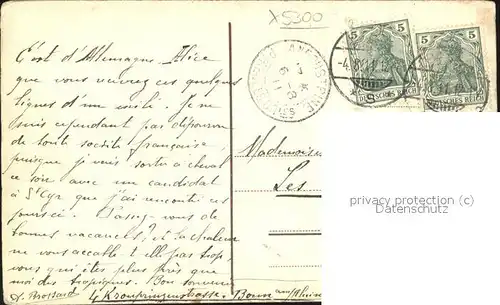 X5300
C'est d'Allemagne, Alice
que vous recevrez ces quelques
lignes d'un exilé. Je ne
suis cependant pas dépourvu
de toute société française,
puisque je vais sortir à cheval
ce soir avec un candidat
à St Cyr que j'ai rencontré ces
jours-ci. Passez-vous de
bonnes vacances, et la chaleur
ne vous accable t'elle pas trop,
vous qui êtes plus près que
moi des tropiques. Bon souvenir
4 Kronprinzenstrasse. Bonn am Rhein
5 5
5 5
DEUTSCHES REICH
DEUTSCHES REICH
Mademoise
Les
privacy protection (c)
Datenschutz